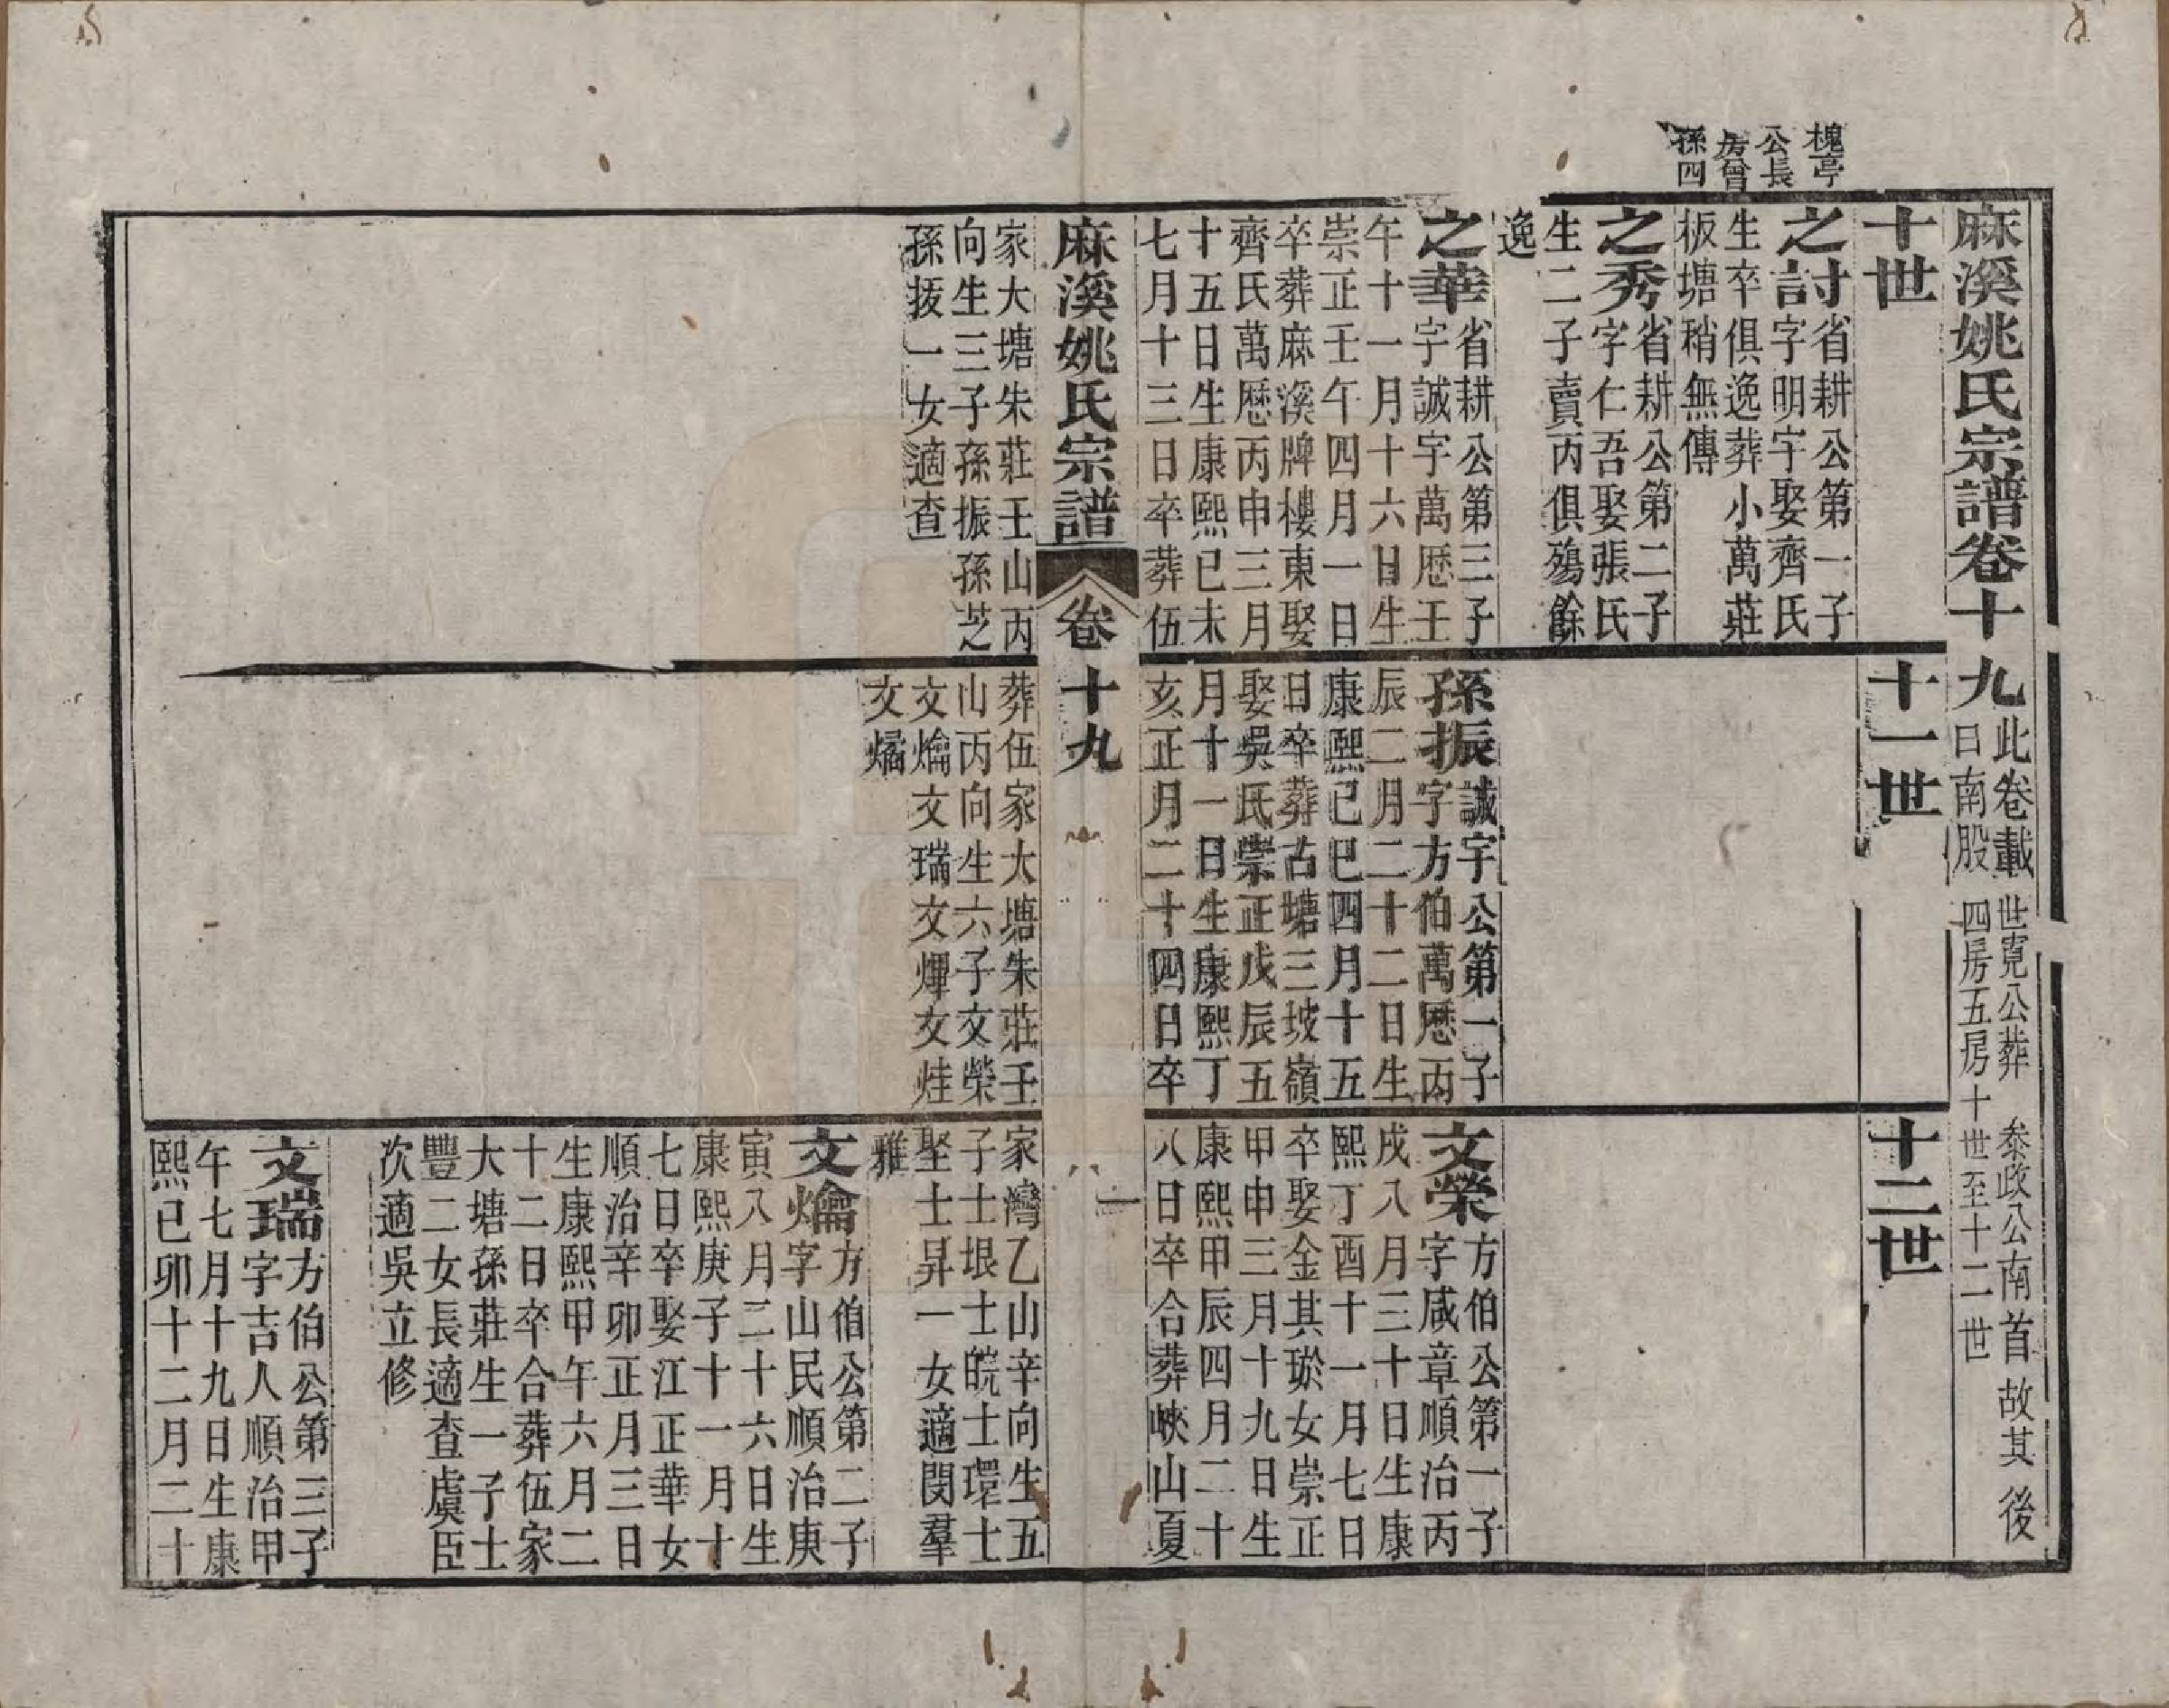 槐亭
公長
房曾
孫四
麻溪姚氏宗譜卷十九
此卷載世寬公葬參政公南首故其後
曰南股四房五房十世至十二世
十世
之討
省耕公第一子
字明宇娶齊氏
生卒俱逸葬小萬莊
板塘稍無傳
之秀
省耕公第二子
字仁吾娶張氏
生二子賣丙俱殤餘
逸
之華
省耕公第三子
字誠宇萬厯壬
午十一月十六日生
崇正壬午四月一日
卒葬麻溪牌樓東娶
齊氏萬厯丙申三月
十五日生康熙已未
七月十三日卒葬伍
十一世
孫振
誠宇公第一子
字方伯萬厯丙
辰二月二十二日生
康熙已巳四月十五
日卒葬古塘三坡嶺
娶吳氏崇正戊辰五
月十一日生康熙丁
亥正月二十四日卒
十二世
文榮
方伯公第一子
字咸章順治丙
戌八月三十日生康
熙丁酉十一月七日
卒娶金其瑸女崇正
甲申三月十九日生
康熙甲辰四月二十
八日卒合葬峽山夏
麻溪姚氏宗譜
卷十九
一
家大塘朱莊壬山丙
向生三子孫振孫芝
孫拔一女適查
葬伍家大塘朱莊壬
山丙向生六子文榮
文爚文瑞文燀文烓
文燏
家灣乙山辛向生五
子士垠士皖士環士
堅士昇一女適閔羣
雅
文爚
方伯公第二子
字山民順治庚
寅八月二十六日生
康熙庚子十一月十
七日卒娶江正華女
順治辛卯正月三日
生康熙甲午六月二
十二日卒合葬伍家
大塘孫莊生一子士
豐二女長適查虞臣
次適吳立修
文瑞
方伯公第三子
字吉人順治甲
午七月十九日生康
熙已卯十二月二十